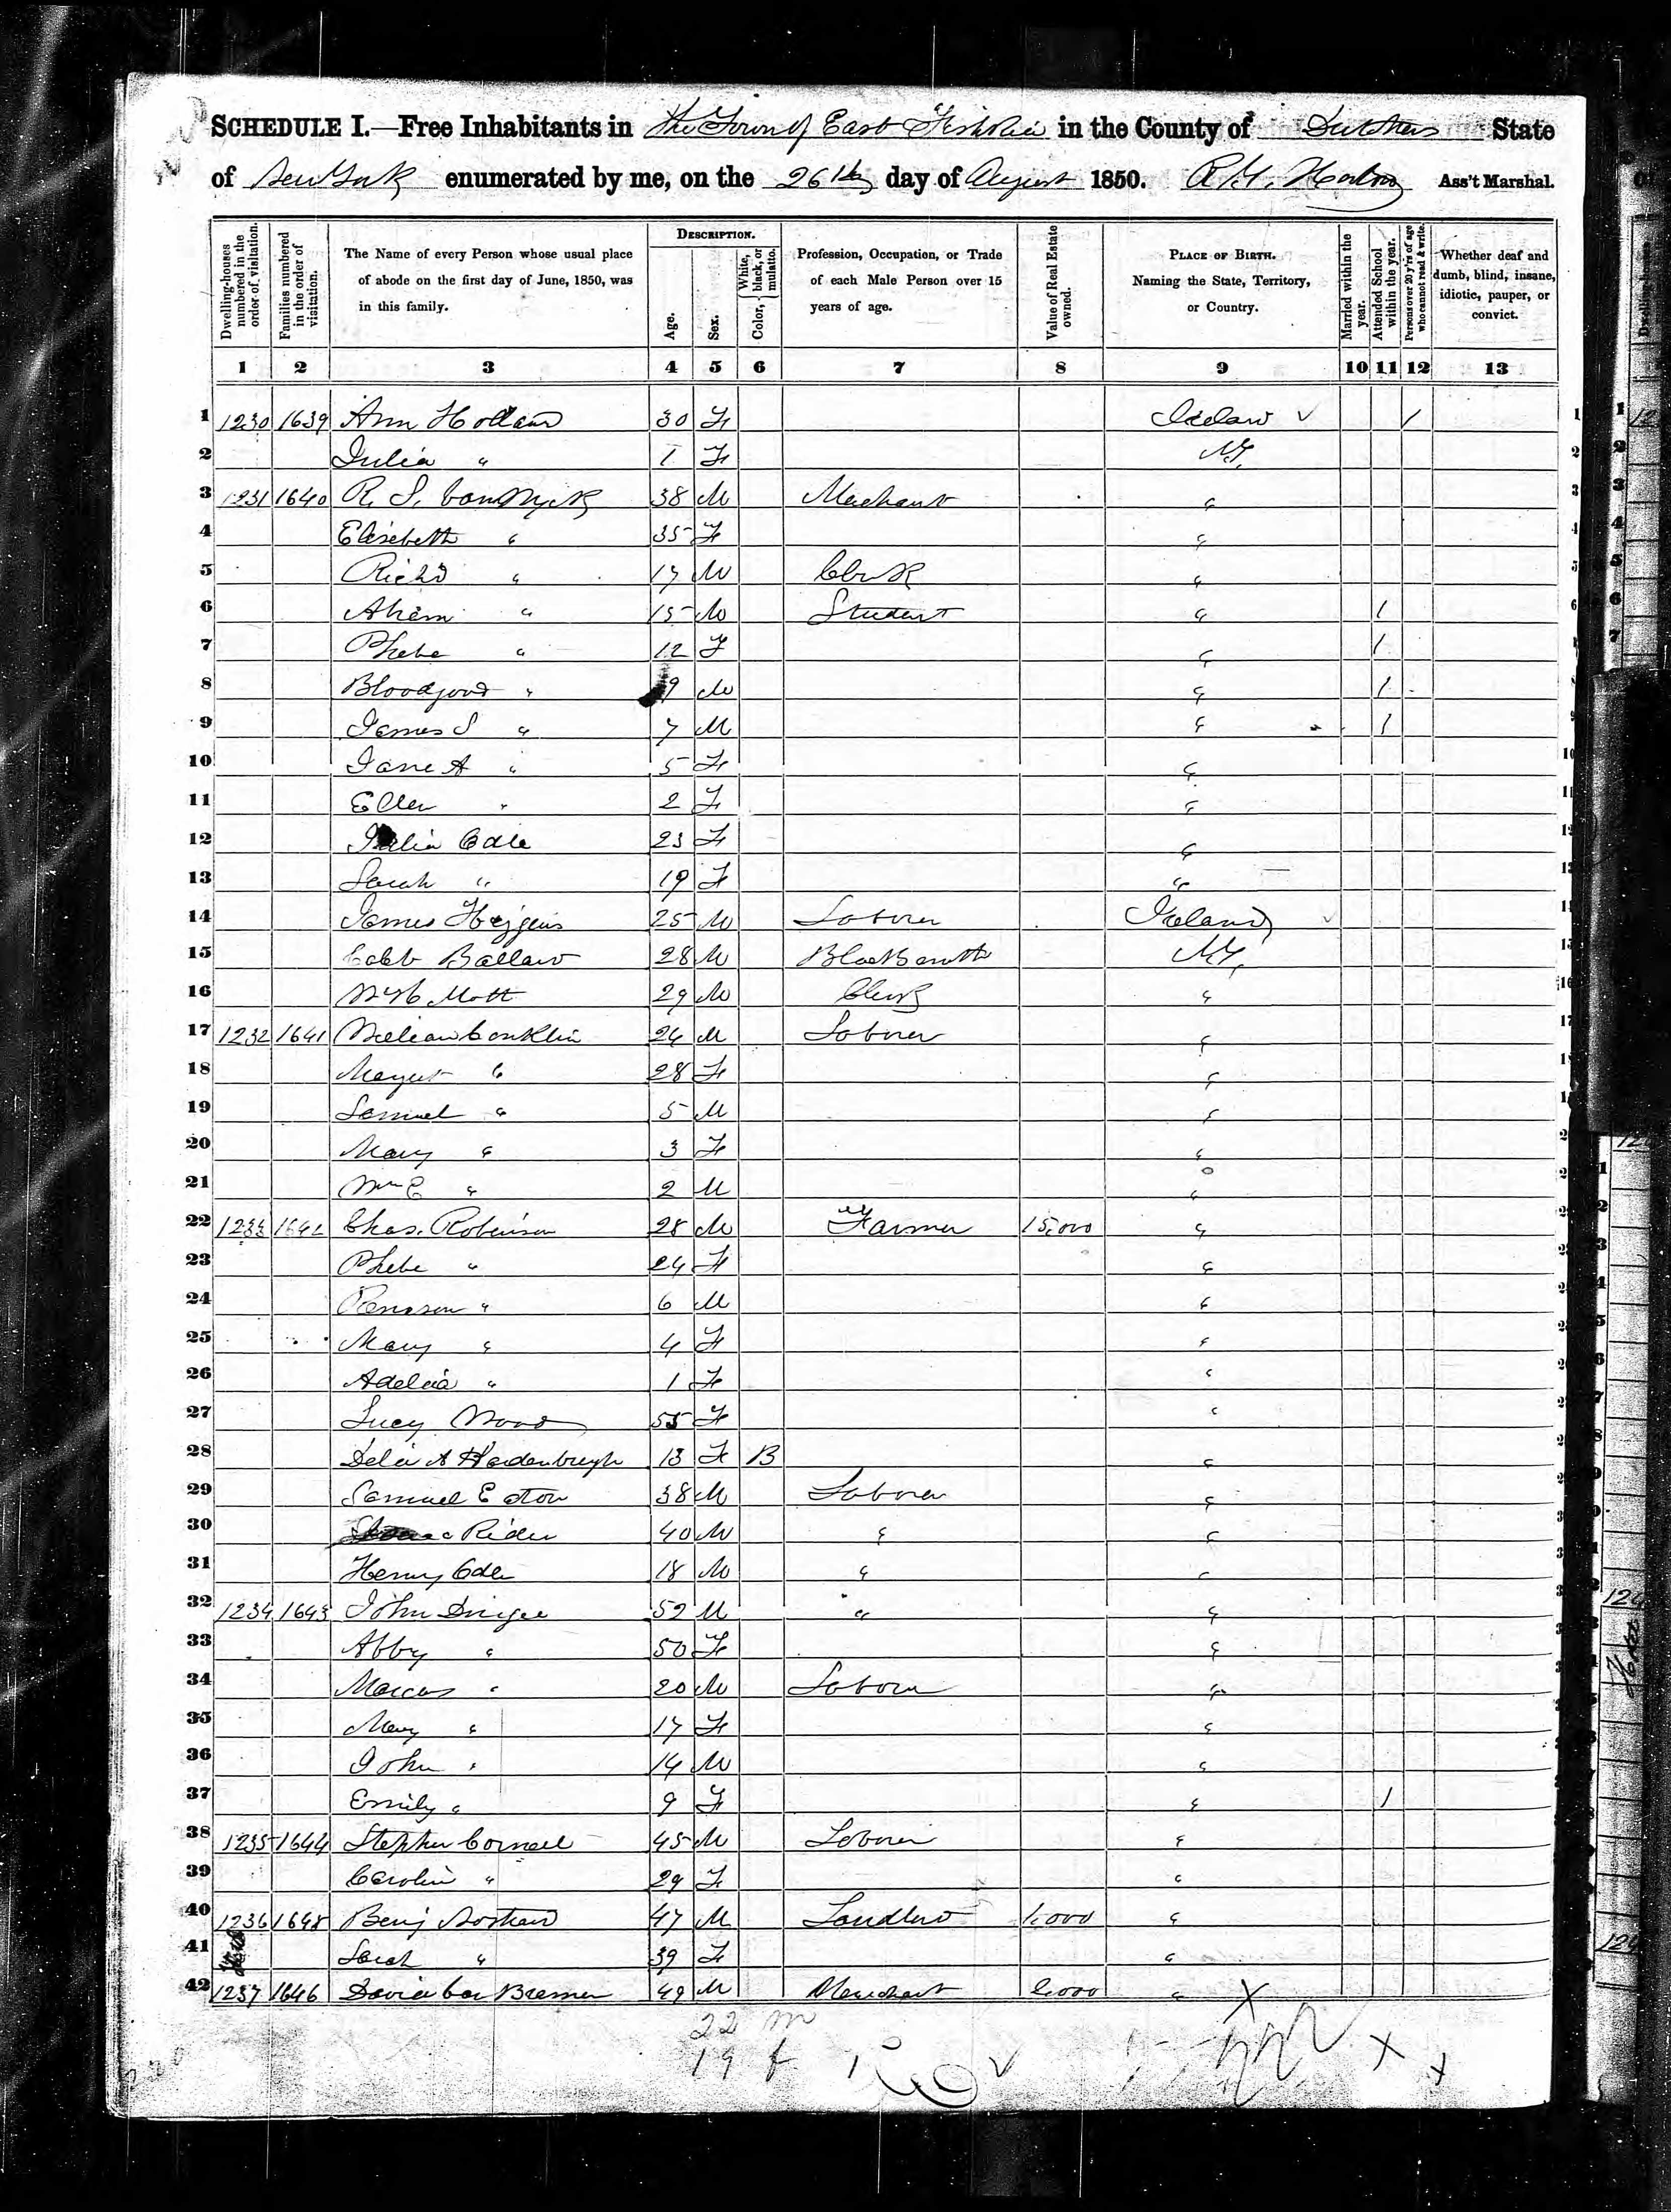 SCHEDULE I.—Free Inhabitants in the Town of East Fishkill in the County of Dutchess State
of New York enumerated by me, on the 26th day of August 1850. Ass't Marshal.
Dwelling-houses numbered in the order of visitation.
Families numbered in the order of visitation.
The Name of every Person whose usual place of abode on the first day of June, 1850, was in this family.
DESCRIPTION.
Age.
Sex.
Color, { White, black, or mulatto.
Profession, Occupation, or Trade of each Male Person over 15 years of age.
Value of Real Estate owned.
PLACE OF BIRTH. Naming the State, Territory, or Country.
Married within the year.
Attended School within the year.
Persons over 20 y'rs of age who cannot read & write.
Whether deaf and dumb, blind, insane, idiotic, pauper, or convict.
1 2 3 4 5 6 7 8 9 10 11 12 13
1 1230 1639 Ann Holland 30 F Ireland ✓ / 1
2 Julia " 1 F N.Y. 2
3 1231 1640 R. S. Van Wyck 38 M Merchant " 3
4 Elizabeth " 35 F " 4
5 Richd " 17 M Clerk " 5
6 Abram " 15 M Student " 1 6
7 Phebe " 12 F " 1
8 Bloodgood " 9 M " 1
9 James S " 7 M " 1
10 Jane A " 5 F "
11 Ellen " 2 F "
12 Julia Cole 23 F "
13 Sarah " 19 F "
14 James Higgins 25 M Laborer Ireland ✓
15 Caleb Ballard 28 M Blacksmith N.Y.
16 Mott 29 M Clerk "
17 1232 1641 William Conklin 24 M Laborer "
18 Margret " 28 F "
19 Samuel " 5 M "
20 Mary " 3 F "
21 Wm E " 2 M "
22 1233 1642 Chas. Robinson 28 M Farmer 15,000 "
23 Phebe " 24 F "
24 " 6 M "
25 Mary " 4 F "
26 Adelia " 1 F "
27 Lucy Wood 55 F "
28 Delia A Hardenburgh 13 F B "
29 Samuel Eaton 38 M Laborer "
30 Rider 40 M " "
31 Henry Cole 18 M " "
32 1234 1643 John Dingee 52 M " "
33 Abby " 50 F "
34 Marcus " 20 M Laborer "
35 Mary " 17 F "
36 John " 14 M "
37 Emily " 9 F " 1
38 1235 1644 Stephen Cornell 45 M Laborer "
39 Carolin " 29 F "
40 1236 1645 Benj 47 M Landlord 1,000 "
41 Sarah " 39 F "
42 1237 1646 David 49 M Merchant 2,000 " X
22 m
19 f